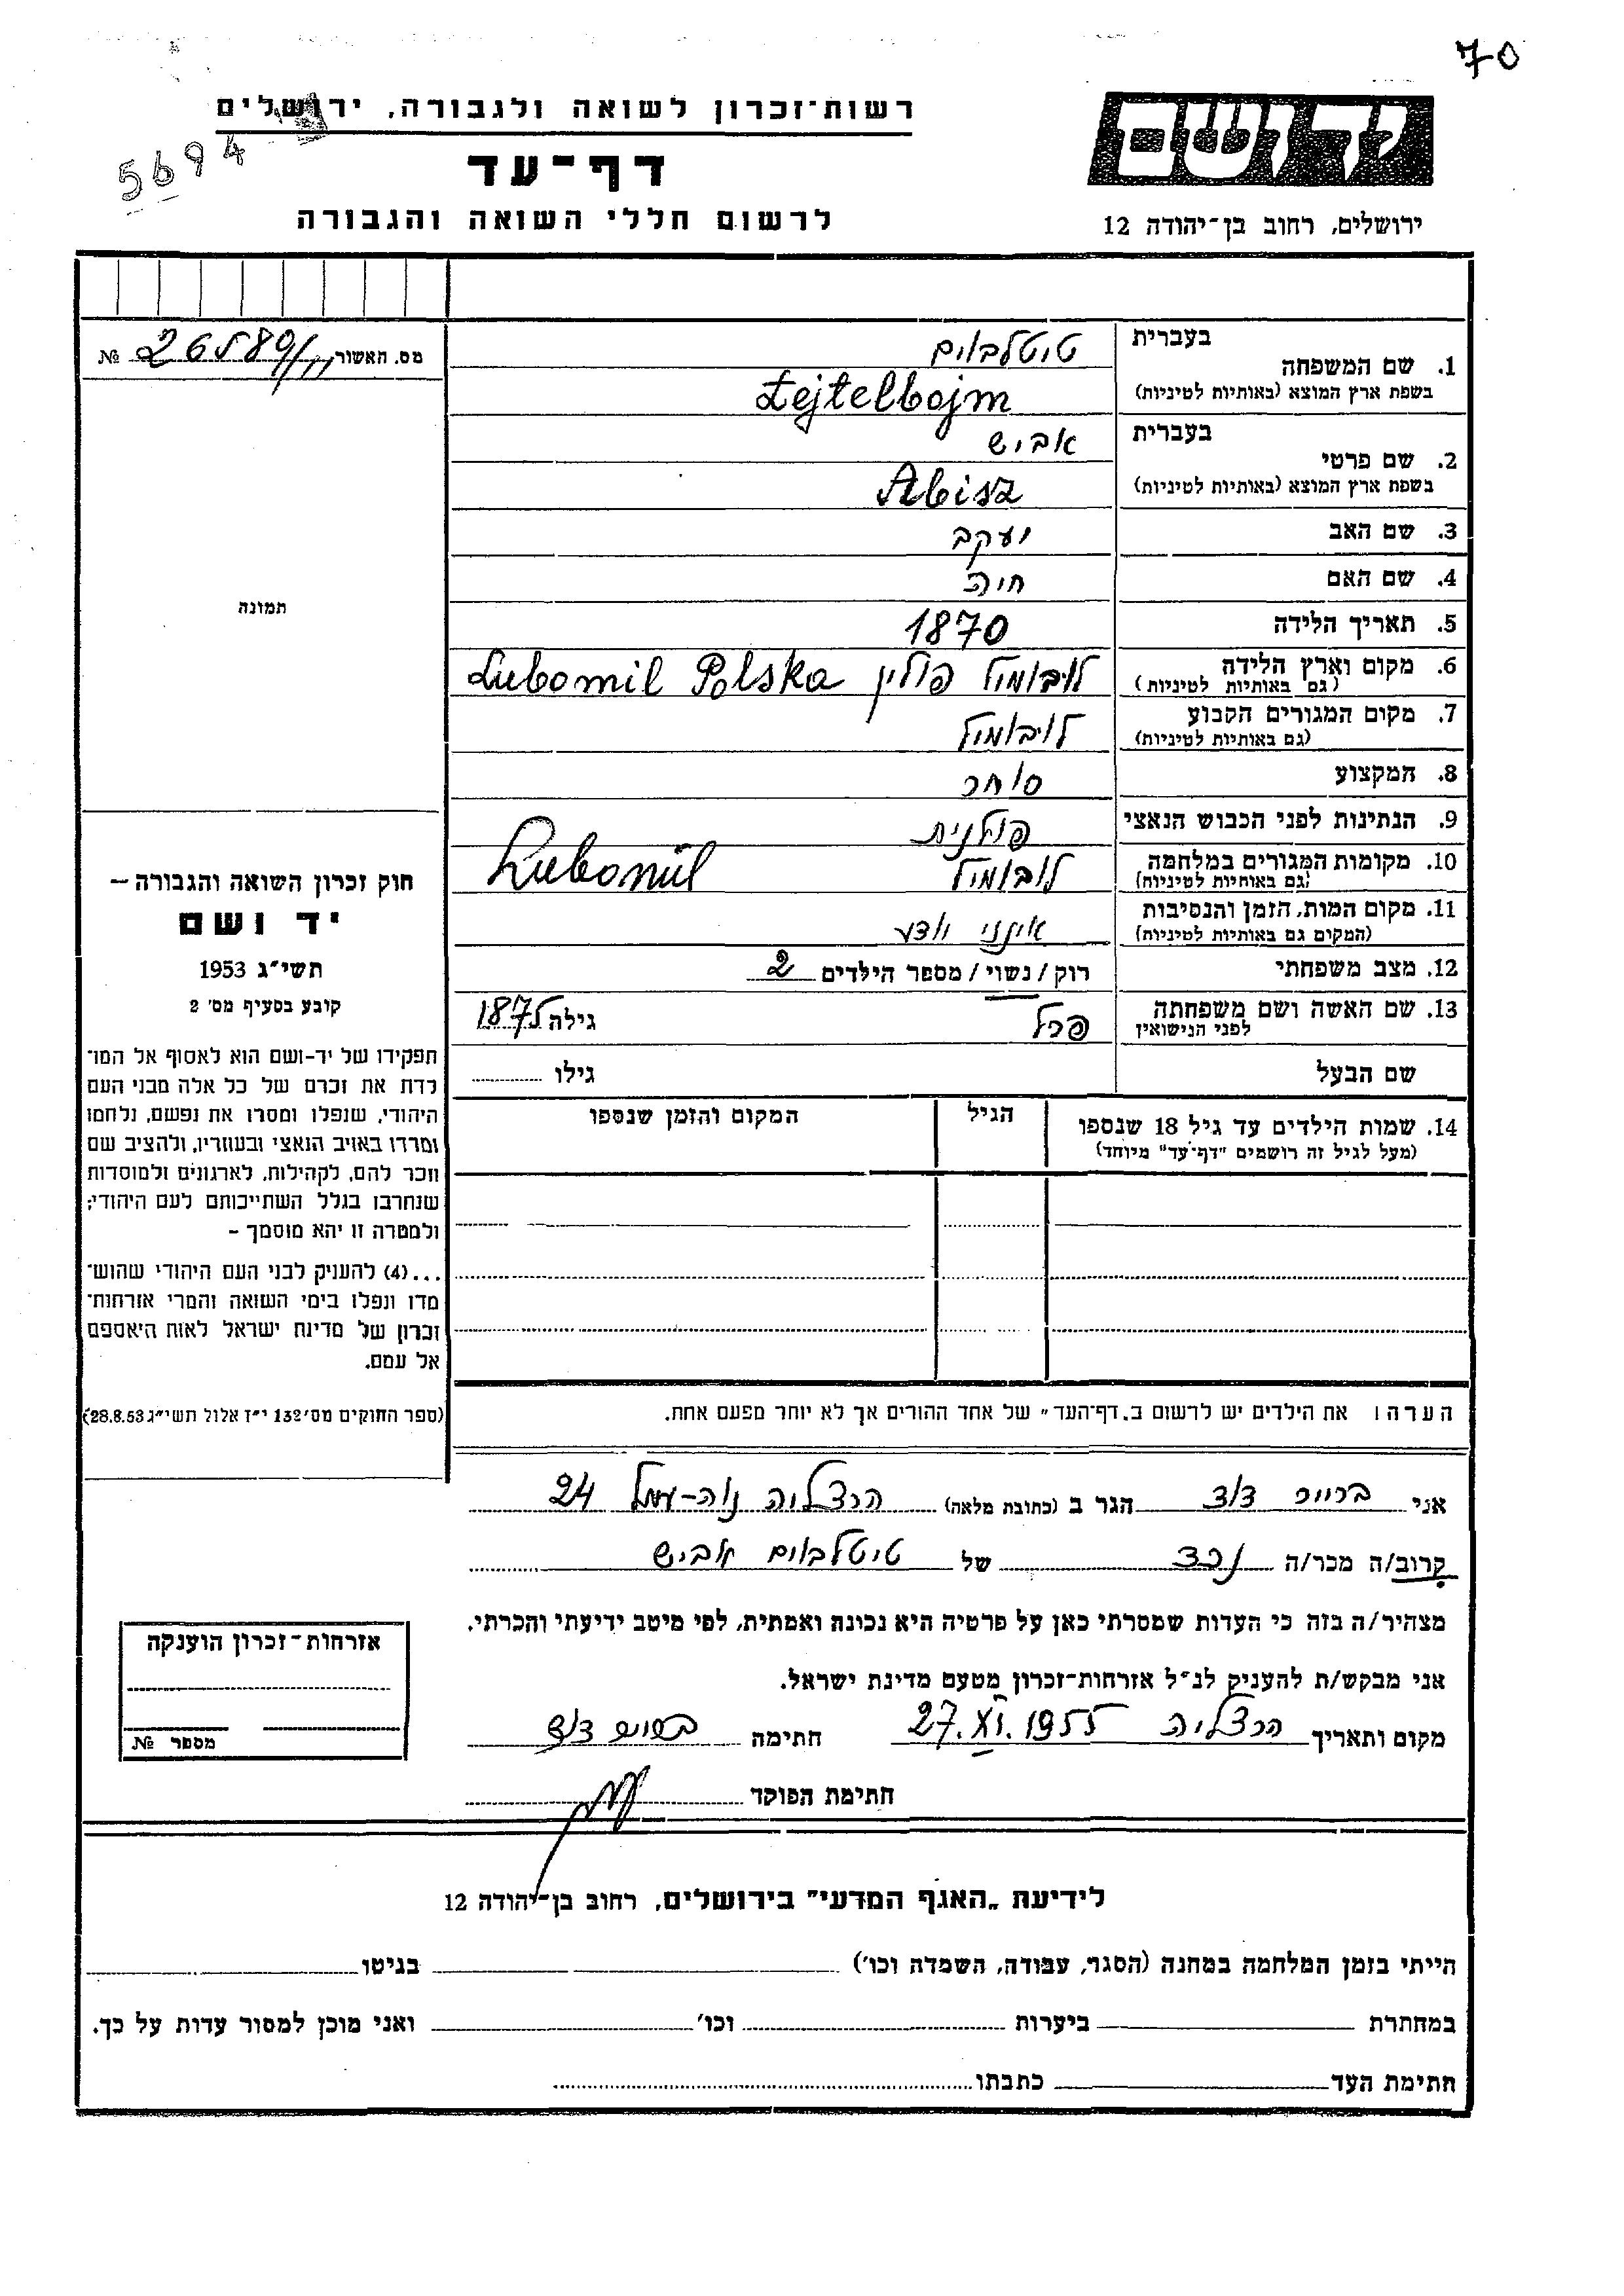 70
ידושם
רשות־זכרון לשואה ולגבורה, ירושלים
5694
דף־עד
לרשום חללי השואה והגבורה
ירושלים, רחוב בן־יהודה 12
מס. האשור 26580/11 №
תמונה
בעברית
1. שם המשפחה טיטלבוים
בשפת ארץ המוצא (באותיות לטיניות) Tejtelbojm
בעברית
2. שם פרטי אביש
בשפת ארץ המוצא (באותיות לטיניות) Abisz
3. שם האב יעקב
4. שם האם חיה
5. תאריך הלידה 1870
6. מקום וארץ הלידה לובומיל פולין Lubomil Polska
(גם באותיות לטיניות)
7. מקום המגורים הקבוע לובומיל
(גם באותיות לטיניות)
8. המקצוע סוחר
9. הנתינות לפני הכבוש הנאצי פולנית
10. מקומות המגורים במלחמה לובומיל Lubomil
(גם באותיות לטיניות)
11. מקום המות, הזמן והנסיבות אינני יודע
(המקום גם באותיות לטיניות)
12. מצב משפחתי רוק / נשוי / מספר הילדים 2
13. שם האשה ושם משפחתה פרל גילה 1875
לפני הנישואין
שם הבעל גילו
14. שמות הילדים עד גיל 18 שנספו הגיל המקום והזמן שנספו
(מעל לגיל זה רושמים "דף־עד" מיוחד)
הערה: את הילדים יש לרשום ב„דף־העד" של אחד ההורים אך לא יותר מפעם אחת.
חוק זכרון השואה והגבורה –
יד ושם
תשי"ג 1953
קובע בסעיף מס' 2
תפקידו של יד־ושם הוא לאסוף אל המו־
לדת את זכרם של כל אלה מבני העם
היהודי, שנפלו ומסרו את נפשם, נלחמו
ומרדו באויב הנאצי ובעוזריו, ולהציב שם
וזכר להם, לקהילות, לארגונים ולמוסדות
שנחרבו בגלל השתייכותם לעם היהודי;
ולמטרה זו יהא מוסמך –
...(4) להעניק לבני העם היהודי שהוש־
מדו ונפלו בימי השואה והמרי אזרחות־
זכרון של מדינת ישראל לאות היאספם
אל עמם.
(ספר החוקים מס' 132 י"ז אלול תשי"ג 28.8.53)
אני דוד הגר ב (כתובת מלאה) הרצליה נוה-עמל 24
קרוב/ה מכר/ה נכד של טיטלבוים אביש
מצהיר/ה בזה כי העדות שמסרתי כאן על פרטיה היא נכונה ואמתית, לפי מיטב ידיעתי והכרתי.
אני מבקש/ת להעניק לנ"ל אזרחות־זכרון מטעם מדינת ישראל.
מקום ותאריך הרצליה 27.XI.1955 חתימה דוד
חתימת הפוקד
אזרחות־זכרון הוענקה
מספר №
לידיעת „האגף המדעי" בירושלים, רחוב בן־יהודה 12
הייתי בזמן המלחמה במחנה (הסגר, עבודה, השמדה וכו') בגיטו
במחתרת ביערות וכו' ואני מוכן למסור עדות על כך.
חתימת העד כתבתו